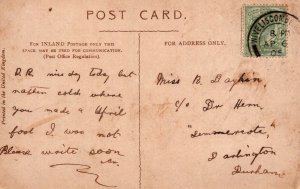 POST CARD.
FOR INLAND POSTAGE ONLY THIS
SPACE, MAY BE USED FOR COMMUNICATION.
(Post Office Regulation).
FOR ADDRESS ONLY.
Printed in the United Kingdom.
D.R. nice day today but
rather cold where
you made a April
fool I was not
Please write soon
Miss B
c/o Dr Hem
Darlington
Durham
WIVELISCOMBE
8. PM
AP 6